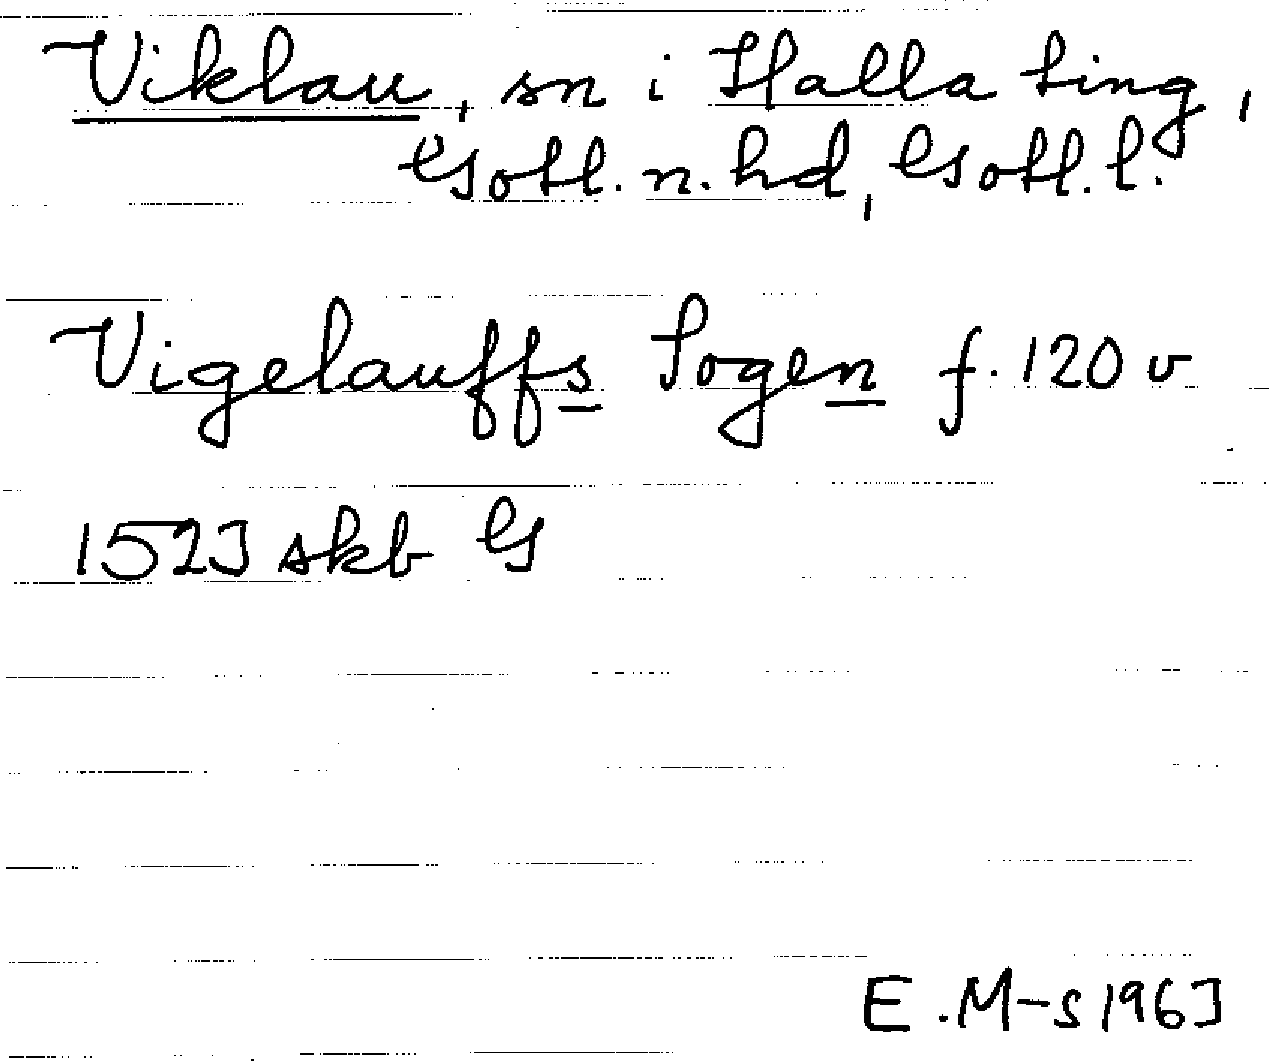 Viklau, sn i Halla ting,
Gotl. n. hd, Gotl. l.
Vigelauffs Sogen f. 120 v
1523 skb G
E. M-s 1963